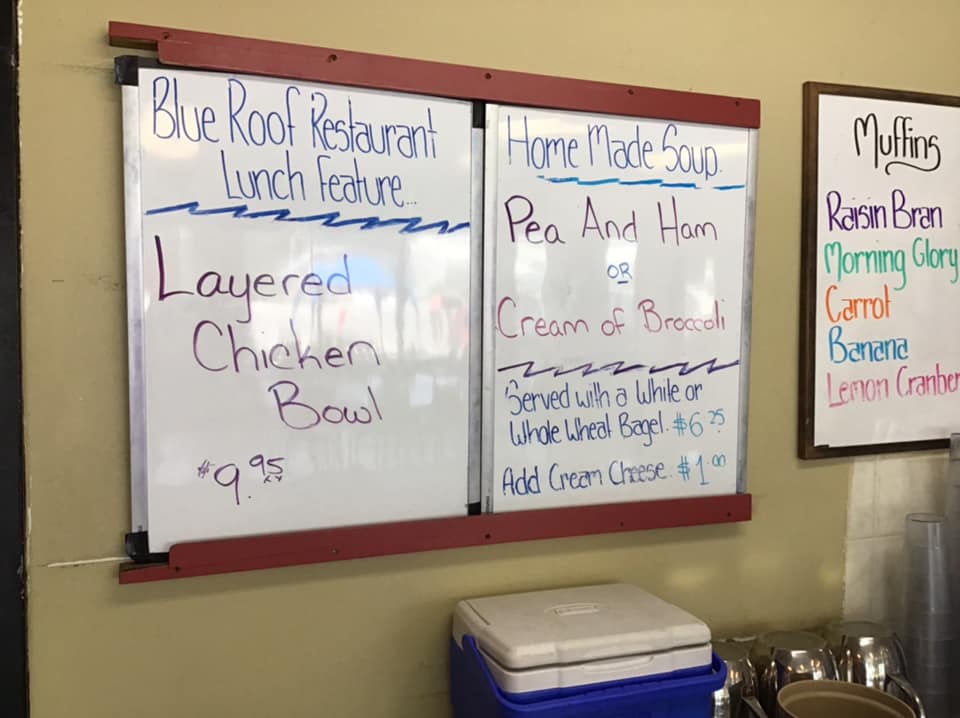 Blue Roof Restaurant
Lunch Feature...
Layered
Chicken
Bowl
$9.95
Home Made Soup.
Pea And Ham
OR
Cream of Broccoli
Served with a White or
Whole Wheat Bagel. $6.25
Add Cream Cheese. $1.00
Muffins
Raisin Bran
Morning Glory
Carrot
Banana
Lemon Cranber